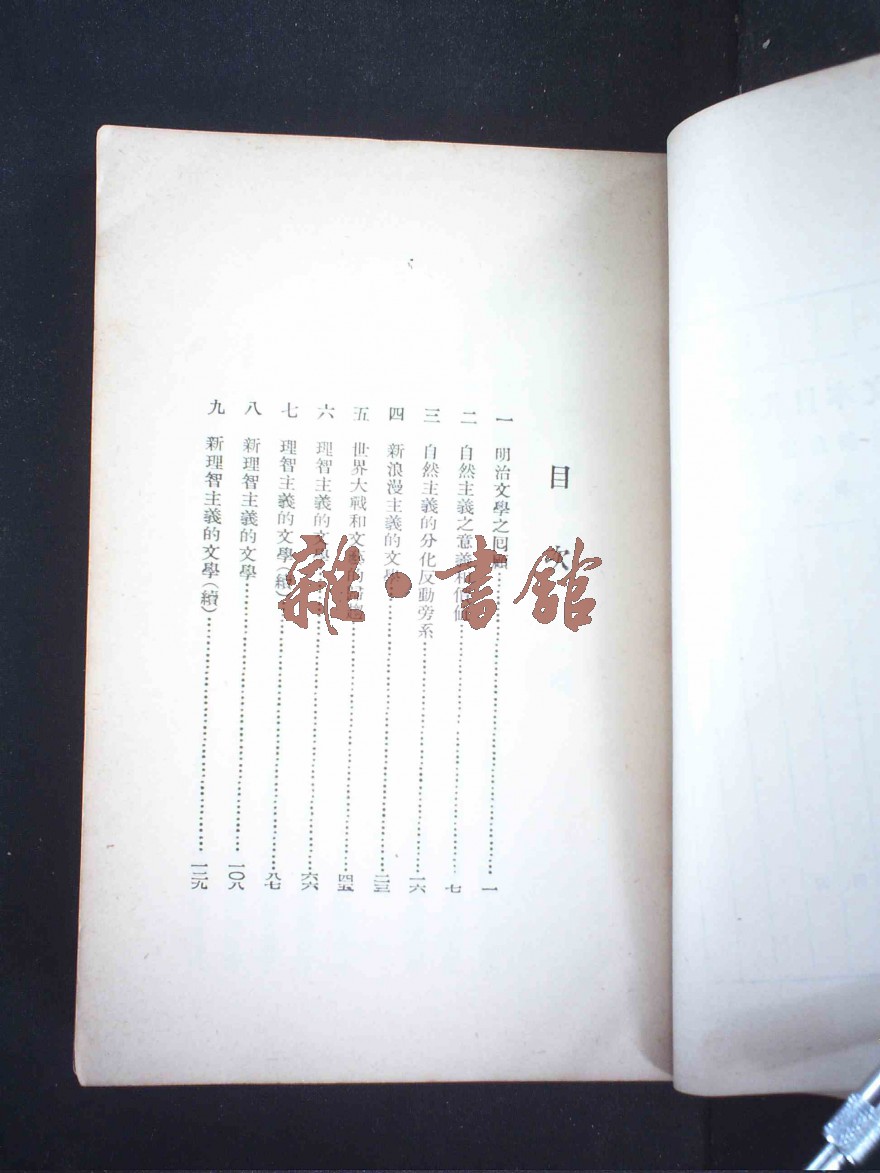 目次
一 明治文學之回顧 一
二 自然主義之意義和價值 七
三 自然主義的分化反動旁系 一六
四 新浪漫主義的文學 二三
五 世界大戰和文 四五
六 理智主義的文學 六六
七 理智主義的文學(續) 八七
八 新理智主義的文學 一〇八
九 新理智主義的文學(續) 一二九
雜·書館